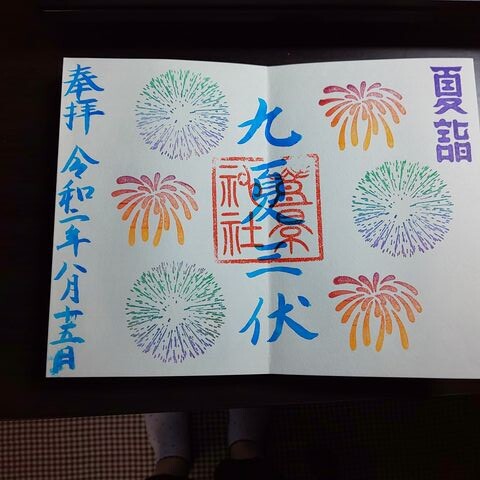 夏詣
九夏三伏
神社
奉拝 令和二年八月十五日